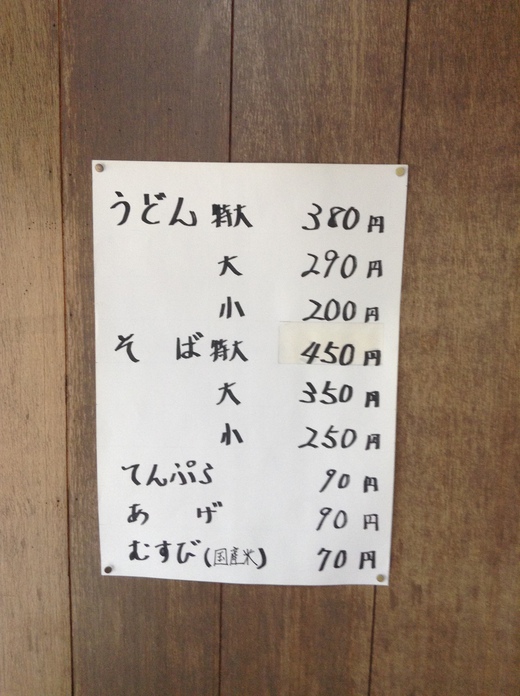 うどん 特大 380円
大 290円
小 200円
そば 特大 450円
大 350円
小 250円
てんぷら 90円
あげ 90円
むすび(国産米) 70円